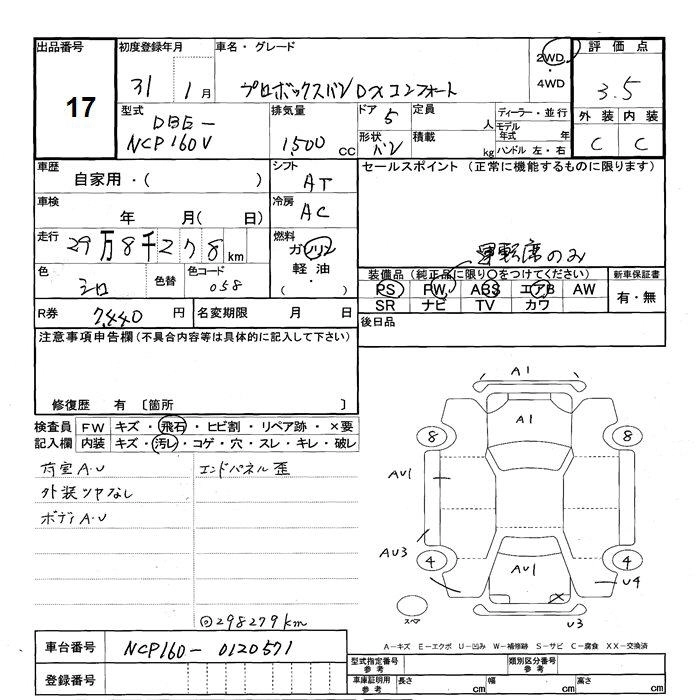 出品番号 初度登録年月 車名・グレード
17
31 1月 プロボックスバン DXコンフォート
2WD・4WD
評価点
3.5
外装 内装
C C
型式 DBE-NCP160V
排気量 1500 cc
ドア 5
形状 バン
定員 人
積載 kg
ディーラー・並行
モデル年式 年
ハンドル 左・右
車歴 自家用・( )
シフト AT
セールスポイント (正常に機能するものに限ります)
車検 年 月( 日)
冷房 AC
走行 29万8千278km
燃料 ガソリン 軽油・( )
運転席のみ
色 シロ 色替 色コード 058
装備品 (純正品に限り○をつけてください)
PS PW ABS エアB AW
SR ナビ TV カワ
新車保証書
有・無
R券 7,440 円 名変期限 月 日
後日品
注意事項申告欄(不具合内容等は具体的に記入して下さい)
修復歴 有 〔箇所 〕
検査員記入欄 FW キズ・飛石・ヒビ割・リペア跡・×要
内装 キズ・汚レ・コゲ・穴・スレ・キレ・破レ
荷室A.U エンドパネル歪
外装ツヤなし
ボディA.U
◎298279km
A1
A1
8 8
AU1
AU3
4 4
AU1
U4
スペア
U3
A-キズ E-エクボ U-凹み W-補修跡 S-サビ C-腐食 XX-交換済
車台番号 NCP160-0120571
登録番号
型式指定番号 参考 類別区分番号 参考
車庫証明用 参考 長さ cm 幅 cm 高さ cm